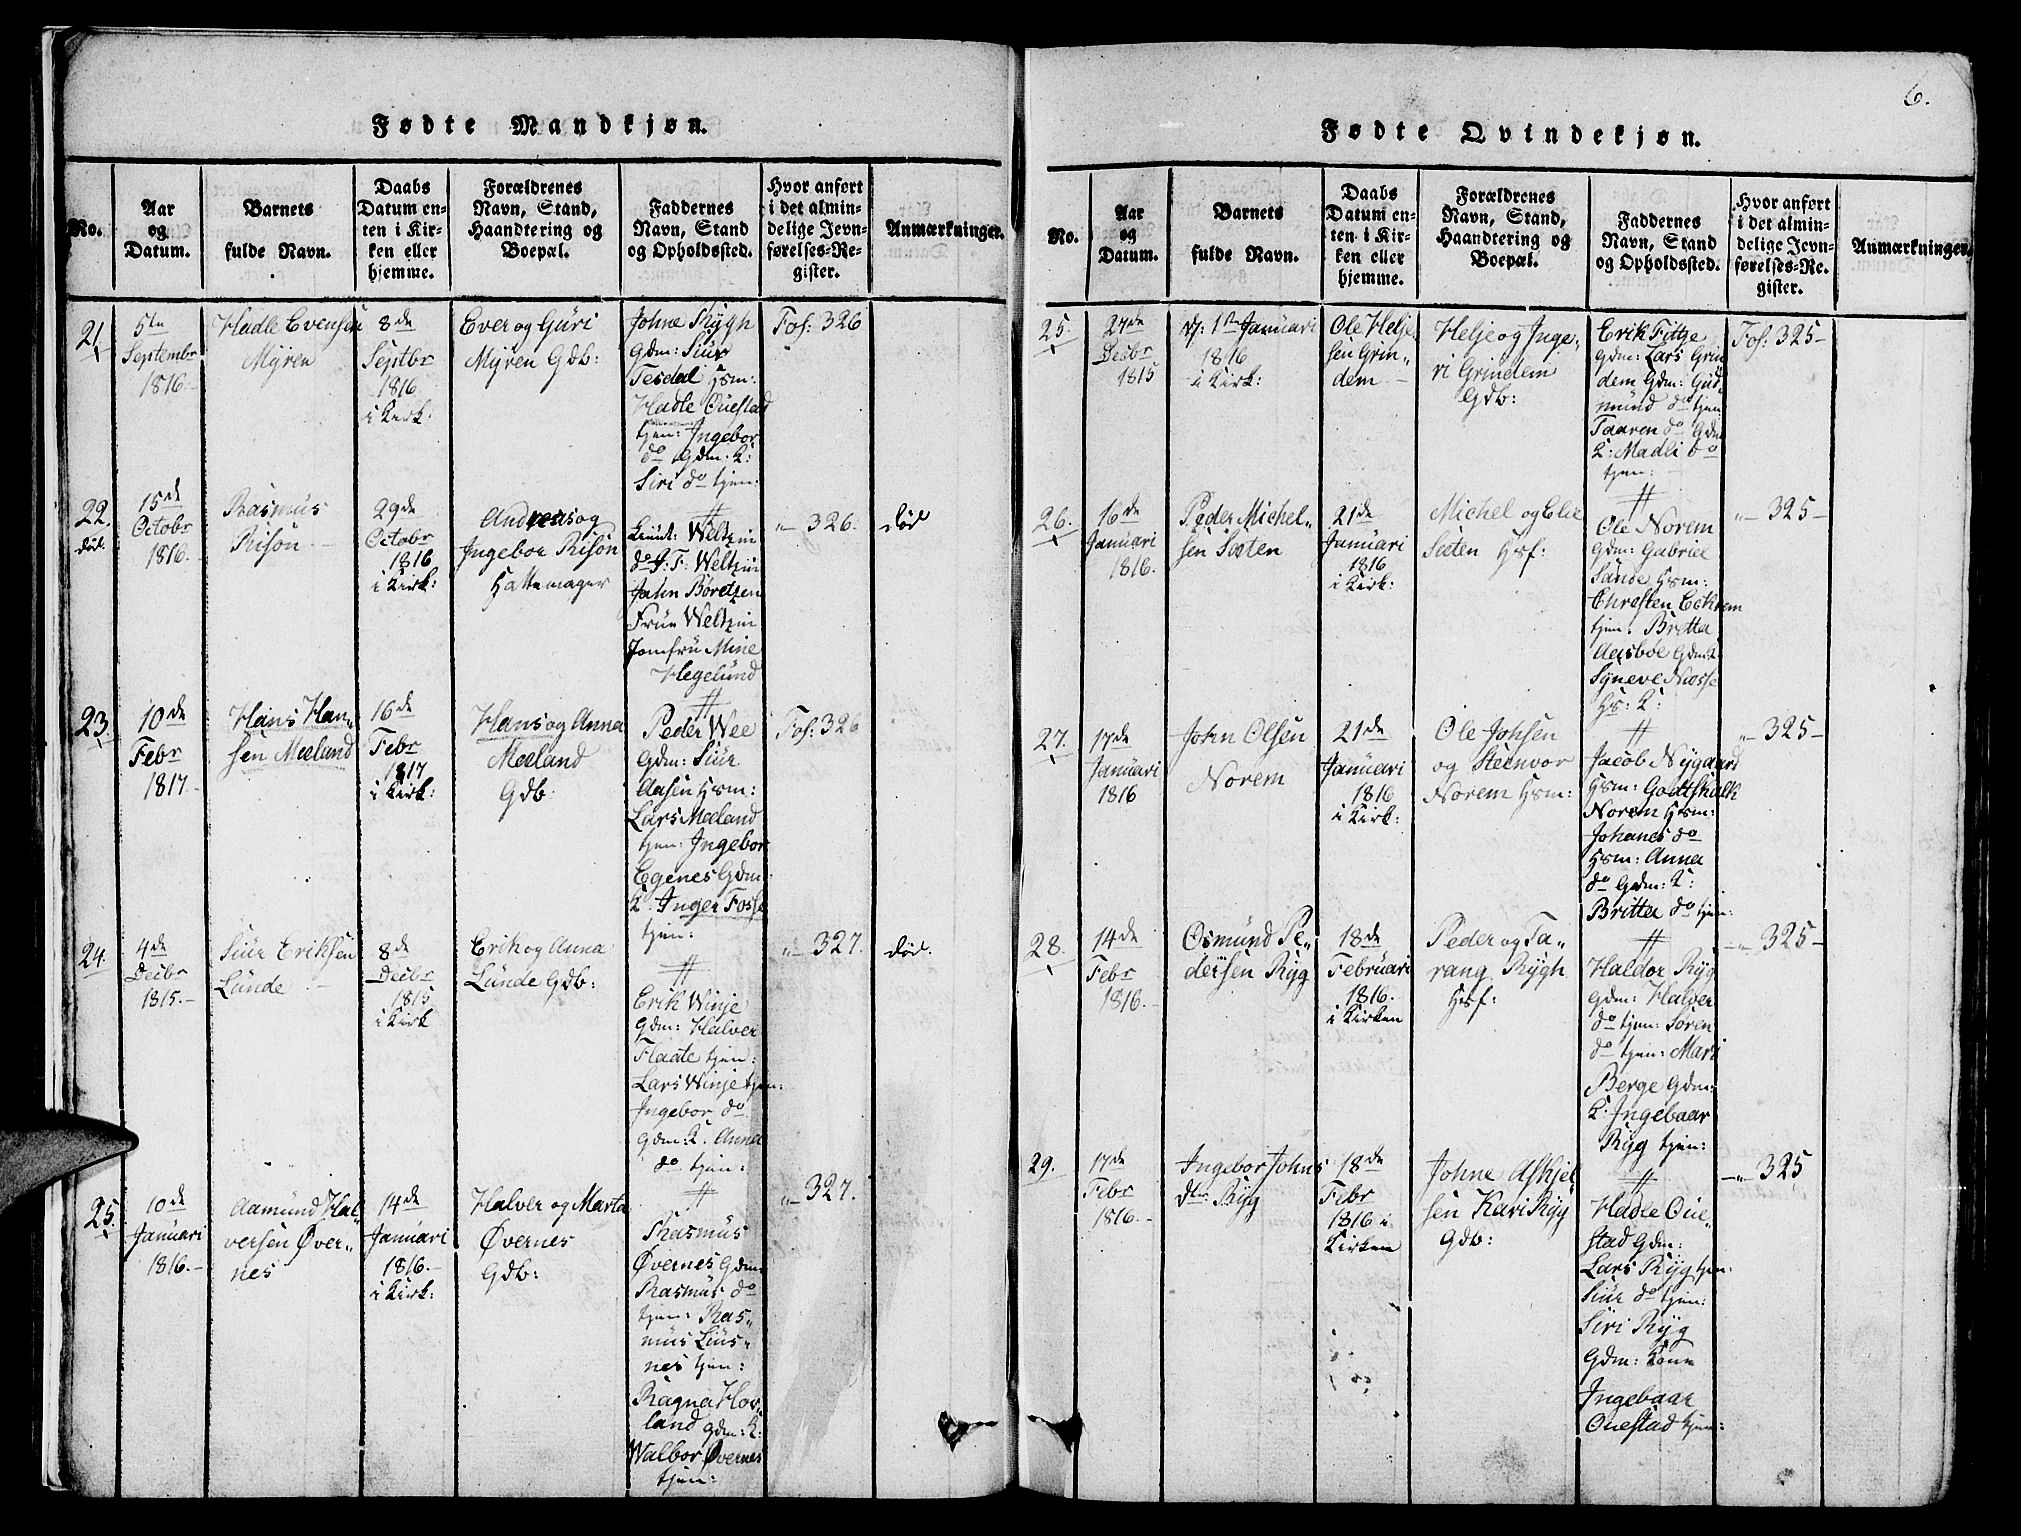 Fødte Mandkjøn.
No.
Aar
og
Datum.
Barnets
fulde Navn.
Daabs
Datum en-
ten i Kir-
ken eller
hjemme.
Forældrenes
Navn, Stand,
Haandtering og
Boepæl.
Faddernes
Navn, Stand
og Opholdssted.
Hvor anført
i det almin-
delige Jevn-
førelses-Re-
gister.
Anmærkninger.
21
5te
Septembr
1816
Hadle Evensen
Myren
8de
Septbr
1816
i Kirk:
Even og Guri
Myren Gdb:
Johne Rygh
Gdm: Siur
Tesdal Hsm:
Hadle Ouestad
tjen: Ingebor
do Gdm: K:
Siri do tjen:
Fol: 326
22.
død.
15de
Octobr
1816.
Rasmus
Risøn
29de
Octobr
1816
i Kirk:
Andreas og
Ingebor Risøn
Hattemager
Liüdt: Weltzin
do F: F: Weltzin
Jahn Børetzen
Frue Weltzin
Jomfru Mine
Hegelund
"- 326.
død
23.
10de
Febr
1817
Hans Han"
sen Meeland
16de
Febr
1817
i Kirk:
Hans og Anna
Meeland
Gdb:
Peder Wee
Gdm: Siur
Aasen Hsm:
Lars Meeland
tjen: Ingebor
Egenes Gdm:
K: Inger Fosse
tjen:
Fol: 326
24.
4de
Decbr
1815.
Siur Eriksen
Lunde
8de
Decbr
1815
i Kirk
Erik og Anna
Lunde Gdb:
Erik Winje
Gdm: Halver
Flaate tjen:
Lars Winje tjen:
Ingebor do
Gdm: K. Anna
do tjen:
"- 327.
død.
25.
10de
Januari
1816.
Aamund Hal"
versen Øver"
nes
14de
Januari
1816.
i Kirk:
Halver og Marta
Øvernes
Gdb:
Rasmus
Øvernes Gdm:
Rasmus do
tjen: Ras"
mus Lius"
nes tjen:
Ragna Hov"
land Gdm: K:
Walbor Øvernes
tjen:
"- 327.
6.
Fødte Qvindekjøn.
No.
Aar
og
Datum.
Barnets
fulde Navn.
Daabs
Datum en-
ten i Kir-
ken eller
hjemme.
Forældrenes
Navn, Stand,
Haandtering og
Boepæl.
Faddernes
Navn, Stand
og Opholdssted.
Hvor anført
i det almin-
delige Jevn-
førelses-Re-
gister.
Anmærkninger.
25.
27de
Decbr
1815
1te Januari
1816
i Kirk:
Ole Helje"
sen Grin"
dem
Helje og Inge"
ri Grindem
Gdb:
Erik Fitje
Gdm: Lars Grin"
dem Gdm: Gud"
mund do tjen:
Taaren do Gdm
K: Madli do
tjen:
Fol: 325
26.
16de
Januari
1816.
Peder Michel"
sen Sæten
21de
Januari
1816
i Kirk:
Michel og Elie
Sæten Hsf:
Ole Norem
Gdm: Gabriel
Sande Hsm:
Chresten Eikrem
tjen: Britta
Aasbøe Gdm: K
Syneve Næsse
Hs: K:
"- 325
27.
17de
Januari
1816
John Olsen
Norem
21de
Januari
1816
i Kirk:
Ole Johsen
og Steenvor
Norem Hsm:
Jacob Nygaard
Hsm: Godtskalk
Norem Hsm:
Johanes do
Hsm: Anna
do Gdm: K:
Britta do tjen:
"- 325
28.
14de
Febr
1816.
Osmund Pe"
dersen Ryg
18de
Februari
1816.
i Kirken
Peder og Ta"
rang Rygh
Hsf:
Haldor Ryg
Gdm: Halver
do tjen: Søren
do tjen: Mari
Berge Gdm:
K. Ingebaar
Ryg tjen:
"- 325
29.
17de
Febr
1816.
Ingebor Johns
dtr Ryg
18de
Febr
1816 i
Kirken
Johne Askjel"
sen Kari Ryg
Gdb:
Hadle Oue"
stad Gdm:
Lars Ryg tjen:
Siur do tjen:
Siri Ryg
Gdm: Kone
Ingebaar
Ouestad tjen:
"- 325